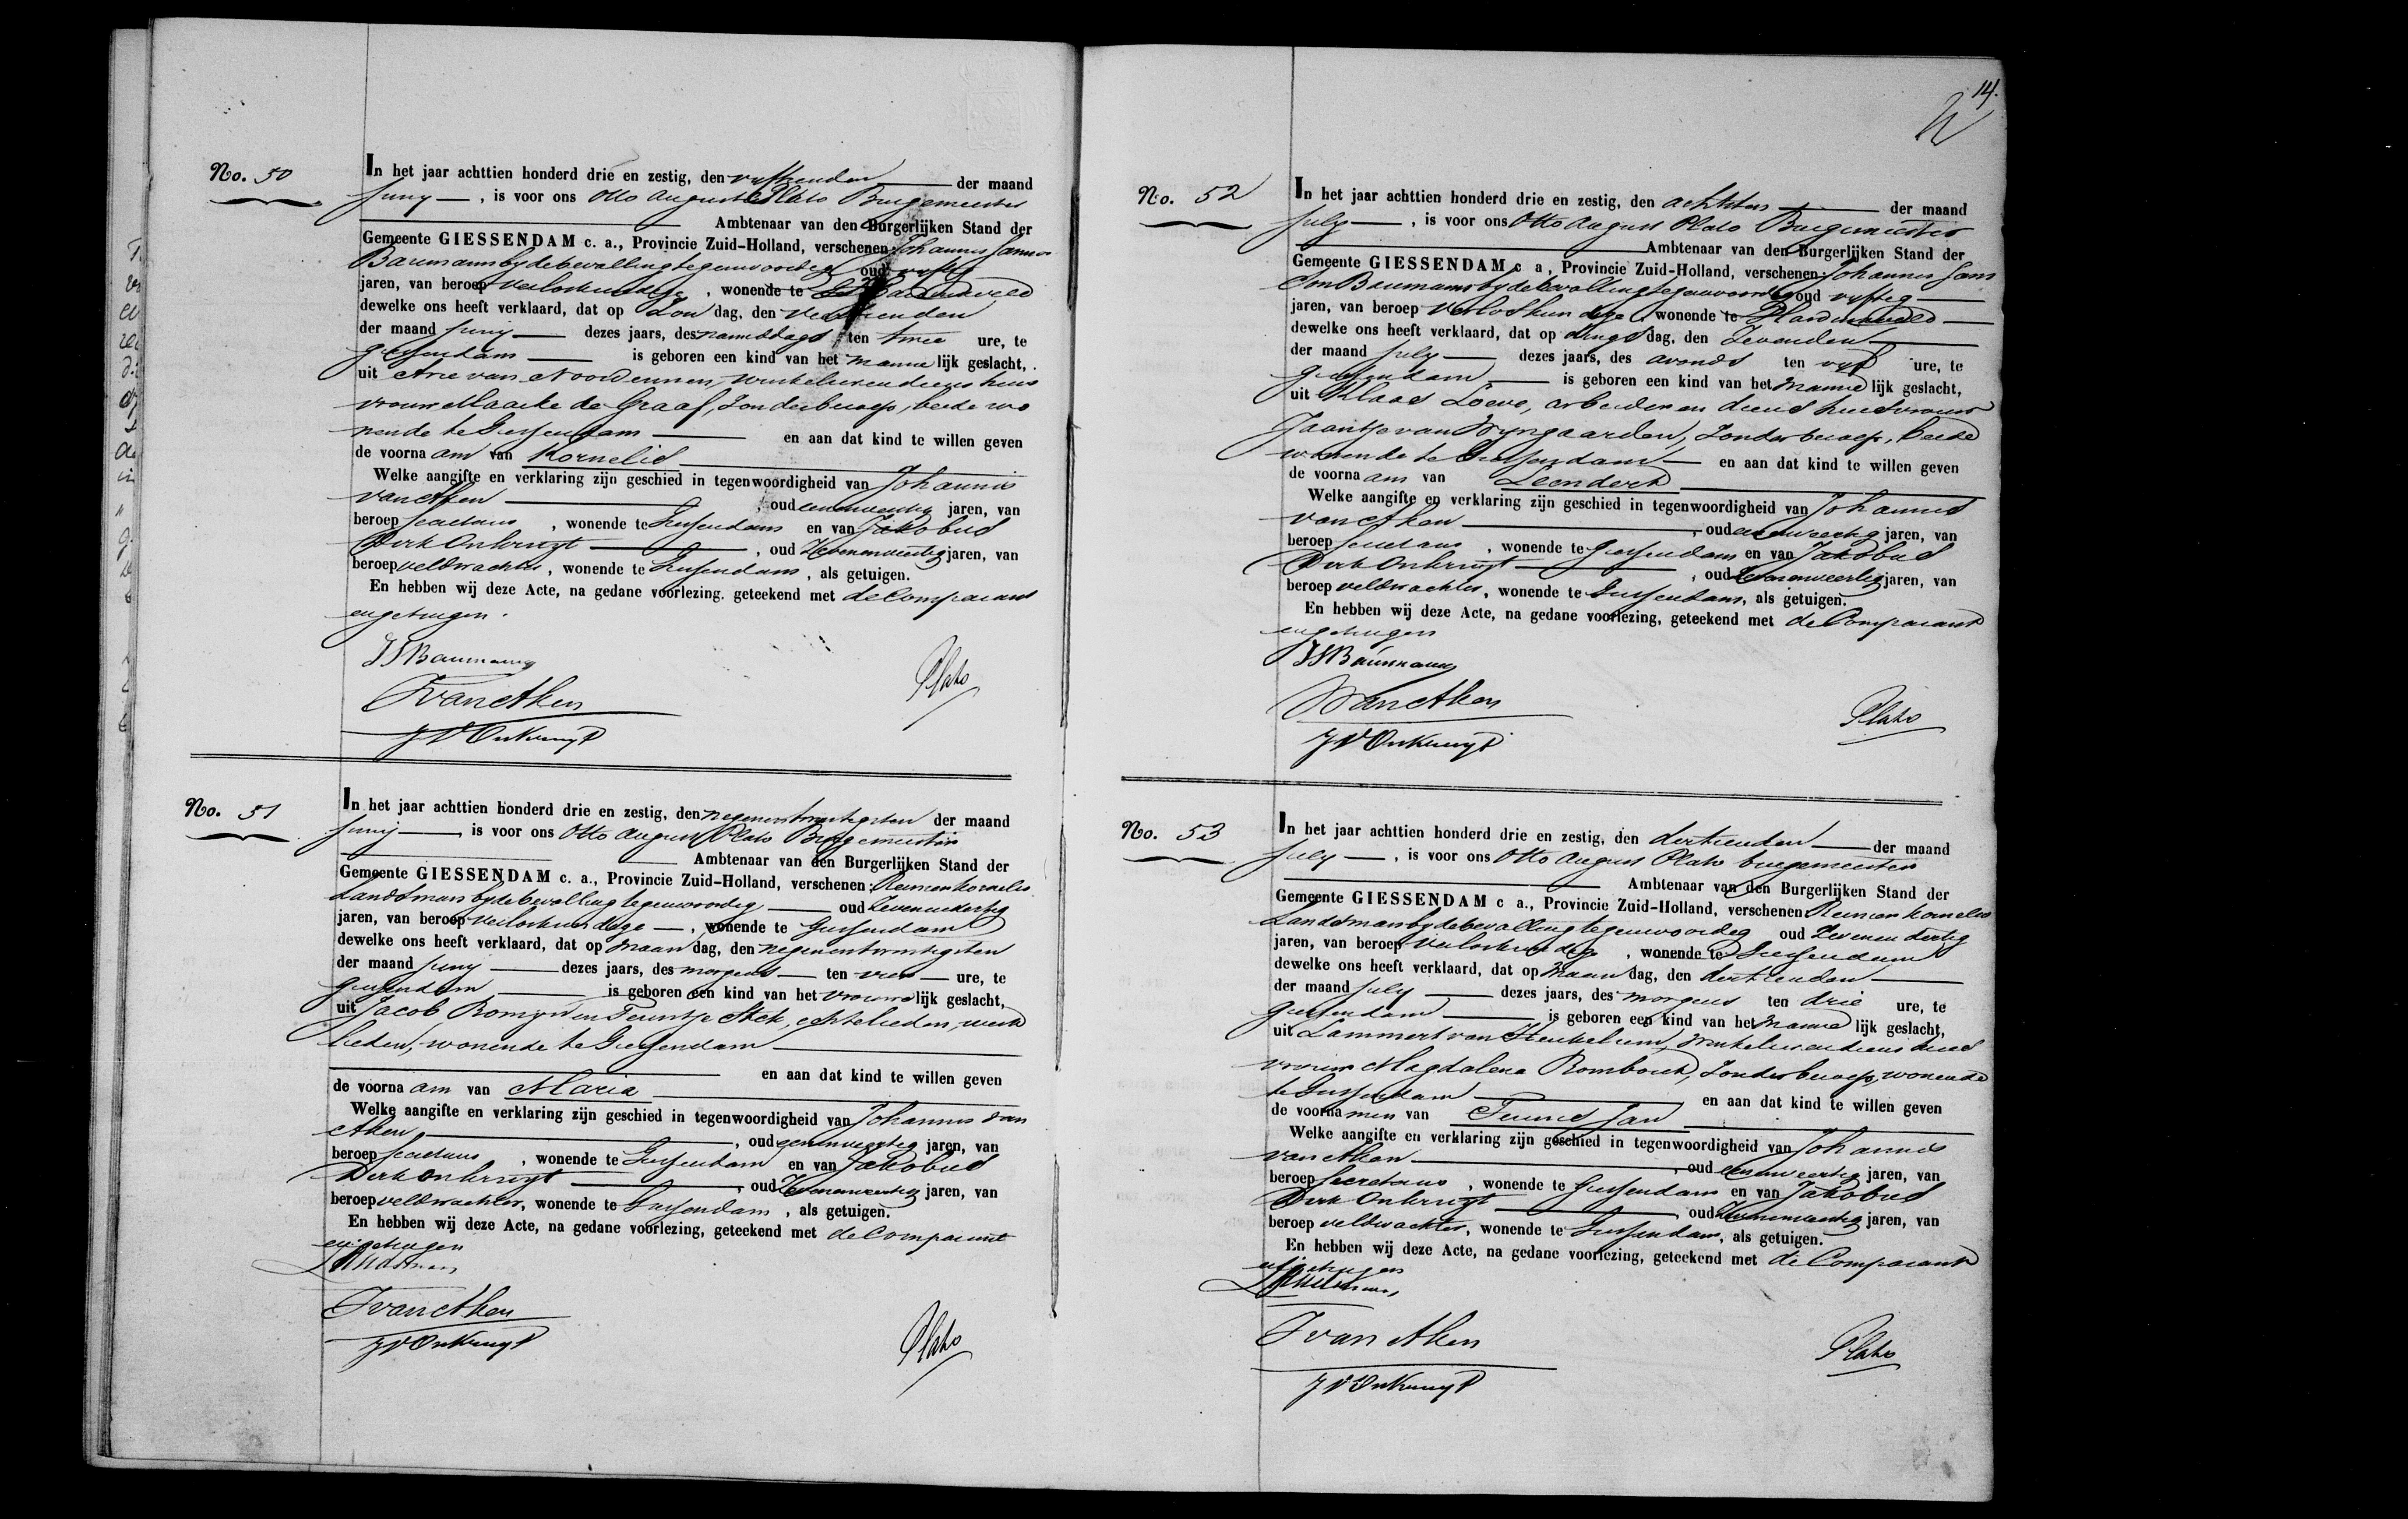 No. 50
In het jaar achttien honderd drie en zestig, den vyftienden der maand
Juny, is voor ons Otto August Plato Burgemeester
Ambtenaar van den Burgerlijken Stand der
Gemeente GIESSENDAM c. a., Provincie Zuid-Holland, verschenen: Johannes Samson
Baumann by de bevalling tegenwoordig oud vyftig
jaren, van beroep verloskundige, wonende te Hardinxveld
dewelke ons heeft verklaard, dat op Zon dag, den veertienden
der maand Juny dezes jaars, des namiddags ten twee ure, te
Giessendam is geboren een kind van het manne lijk geslacht,
uit Arie van Noordennen, winkelier en diens huis
vrouw Maaike de Graaf, zonder beroep, beide wo
nende te Giessendam en aan dat kind te willen geven
de voorna am van Kornelis
Welke aangifte en verklaring zijn geschied in tegenwoordigheid van Johannes
van Aken, oud eenenveertig jaren, van
beroep Secretaris, wonende te Giessendam en van Jakobus
Dirk Onkruyt, oud Zevenenveertig jaren, van
beroep veldwachter, wonende te Giessendam, als getuigen.
En hebben wij deze Acte, na gedane voorlezing, geteekend met de Comparant
en getuigen.
JSBaumann
JvanAken
Plato
JDOnkruyt
No. 51
In het jaar achttien honderd drie en zestig, den negenentwintigsten der maand
Juny, is voor ons Otto August Plato Burgemeester
Ambtenaar van den Burgerlijken Stand der
Gemeente GIESSENDAM c. a., Provincie Zuid-Holland, verschenen: Kornelis
Landsman by de bevalling tegenwoordig oud Zevenendertig
jaren, van beroep verloskundige, wonende te Giessendam
dewelke ons heeft verklaard, dat op Maan dag, den negenentwintigsten
der maand Juny dezes jaars, des morgens ten vier ure, te
Giessendam is geboren een kind van het vrouwe lijk geslacht,
uit Jacob Romyn en Teuntje Stek, echtelieden, werk
lieden, wonende te Giessendam
en aan dat kind te willen geven
de voorna am van Maria
Welke aangifte en verklaring zijn geschied in tegenwoordigheid van Johannes van
Aken, oud eenenveertig jaren, van
beroep Secretaris, wonende te Giessendam en van Jakobus
Dirk Onkruyt, oud Zevenenveertig jaren, van
beroep veldwachter, wonende te Giessendam, als getuigen.
En hebben wij deze Acte, na gedane voorlezing, geteekend met de Comparant
en getuigen
JvanAken
JDOnkruyt
Plato
14.
No. 52
In het jaar achttien honderd drie en zestig, den achtsten der maand
July, is voor ons Otto August Plato Burgemeester
Ambtenaar van den Burgerlijken Stand der
Gemeente GIESSENDAM c a, Provincie Zuid-Holland, verschenen: Johannes Sam
son Baumann by de bevalling tegenwoordig oud vyftig
jaren, van beroep Verloskundige, wonende te Hardinxveld
dewelke ons heeft verklaard, dat op dings dag, den Zevenden
der maand July dezes jaars, des avonds ten vyf ure, te
Giessendam is geboren een kind van het manne lijk geslacht,
uit Klaas Loeve, arbeider en diens huisvrouw
Jaantje van Wyngaarden, zonder beroep, beide
wonende te Giessendam en aan dat kind te willen geven
de voorna am van Leendert
Welke aangifte en verklaring zijn geschied in tegenwoordigheid van Johannes
van Aken, oud eenenveertig jaren, van
beroep Secretaris, wonende te Giessendam en van Jakobus
Dirk Onkruyt, oud Zevenenveertig jaren, van
beroep veldwachter, wonende te Giessendam, als getuigen.
En hebben wij deze Acte, na gedane voorlezing, geteekend met de Comparant
en getuigen
JSBaumann
JvanAken
Plato
JDOnkruyt
No. 53
In het jaar achttien honderd drie en zestig, den dertienden der maand
July, is voor ons Otto August Plato burgemeester
Ambtenaar van den Burgerlijken Stand der
Gemeente GIESSENDAM c a., Provincie Zuid-Holland, verschenen Kornelis
Landsman by de bevalling tegenwoordig oud Zevenendertig
jaren, van beroep Verloskundige, wonende te Giessendam
dewelke ons heeft verklaard, dat op Maan dag, den dertienden
der maand July dezes jaars, des morgens ten drie ure, te
Giessendam is geboren een kind van het manne lijk geslacht,
uit Lammert van Heukelum, winkelier en diens huis
vrouw Magdalena Rombout, zonder beroep, wonende
te Giessendam en aan dat kind te willen geven
de voorna men van Teunis Jan
Welke aangifte en verklaring zijn geschied in tegenwoordigheid van Johannes
van Aken, oud eenenveertig jaren, van
beroep Secretaris, wonende te Giessendam en van Jakobus
Dirk Onkruyt, oud Zevenenveertig jaren, van
beroep veldwachter, wonende te Giessendam, als getuigen.
En hebben wij deze Acte, na gedane voorlezing, geteekend met de Comparant
en getuigen
J van Aken
Plato
JDOnkruyt